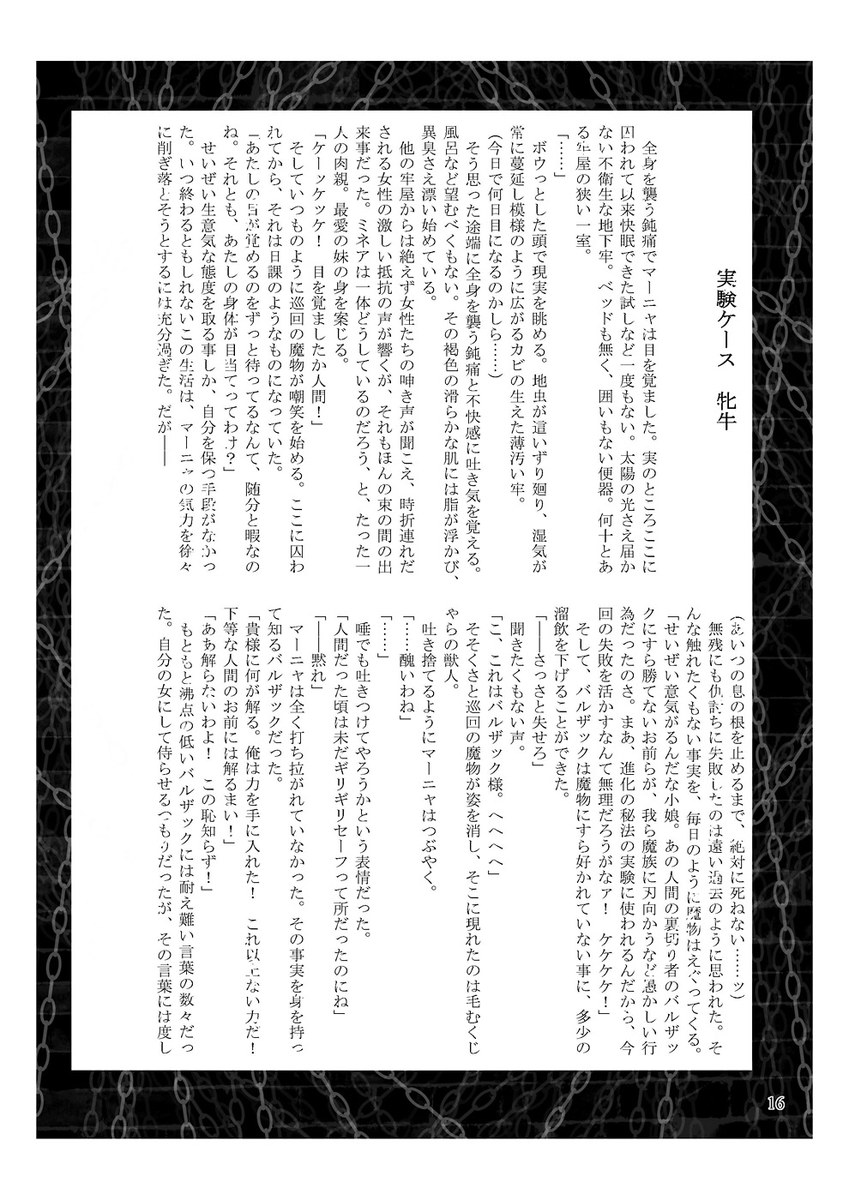 実験ケース　牝牛
　全身を襲う鈍痛でマーニャは目を覚ました。実のところここに
囚われて以来快眠できた試しなど一度もない。太陽の光さえ届か
ない不衛生な地下牢。ベッドも無く、囲いもない便器。何十とあ
る牢屋の狭い一室。
「……」
　ボウっとした頭で現実を眺める。地虫が這いずり廻り、湿気が
常に蔓延し模様のように広がるカビの生えた薄汚い牢。
（今日で何日目になるのかしら……）
　そう思った途端に全身を襲う鈍痛と不快感に吐き気を覚える。
風呂など望むべくもない。その褐色の滑らかな肌には脂が浮かび、
異臭さえ漂い始めている。
　他の牢屋からは絶えず女性たちの呻き声が聞こえ、時折連れだ
される女性の激しい抵抗の声が響くが、それもほんの束の間の出
来事だった。ミネアは一体どうしているのだろう、と、たった一
人の肉親。最愛の妹の身を案じる。
「ケーッケッケ！　目を覚ましたか人間！」
　そしていつものように巡回の魔物が嘲笑を始める。ここに囚わ
れてから、それは日課のようなものになっていた。
「あたしの目が覚めるのをずっと待ってるなんて、随分と暇なの
ね。それとも、あたしの身体が目当てってわけ？」
　せいぜい生意気な態度を取る事しか、自分を保つ手段がなかっ
た。いつ終わるともしれないこの生活は、マーニャの気力を徐々
に削ぎ落とそうとするには充分過ぎた。だが――
（あいつの息の根を止めるまで、絶対に死ねない……ッ）
　無残にも仇討ちに失敗したのは遠い過去のように思われた。そ
んな触れたくもない事実を、毎日のように魔物はえぐってくる。
「せいぜい意気がるんだな小娘。あの人間の裏切り者のバルザッ
クにすら勝てないお前らが、我ら魔族に刃向かうなど愚かしい行
為だったのさ。まあ、進化の秘法の実験に使われるんだから、今
回の失敗を活かすなんて無理だろうがなァ！　ケケケケ！」
　そして、バルザックは魔物にすら好かれていない事に、多少の
溜飲を下げることができた。
「――さっさと失せろ」
　聞きたくもない声。
「こ、これはバルザック様。へへへへ」
　そそくさと巡回の魔物が姿を消し、そこに現れたのは毛むくじ
ゃらの獣人。
　吐き捨てるようにマーニャはつぶやく。
「……醜いわね」
「……」
　唾でも吐きつけてやろうかという表情だった。
「人間だった頃は未だギリギリセーフって所だったのにね」
「――黙れ」
　マーニャは全く打ち拉がれていなかった。その事実を身を持っ
て知るバルザックだった。
「貴様に何が解る。俺は力を手に入れた！　これ以上ない力だ！
下等な人間のお前には解るまい！」
「ああ解らないわよ！　この恥知らず！」
　もともと沸点の低いバルザックには耐え難い言葉の数々だっ
た。自分の女にして侍らせるつもりだったが、その言葉には度し
16